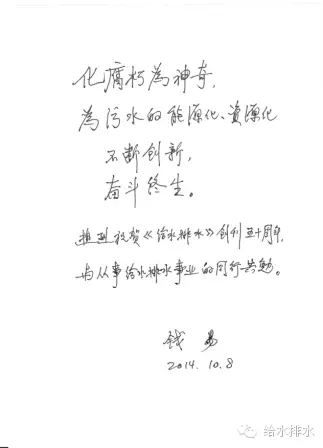 化腐朽为神奇，
為污水的能源化、资源化
不断创新，
奋斗终生。
祝贺《给水排水》创刊五十周年，
与从事给水排水事业的同行共勉。
钱易
2014.10.8
给水排水